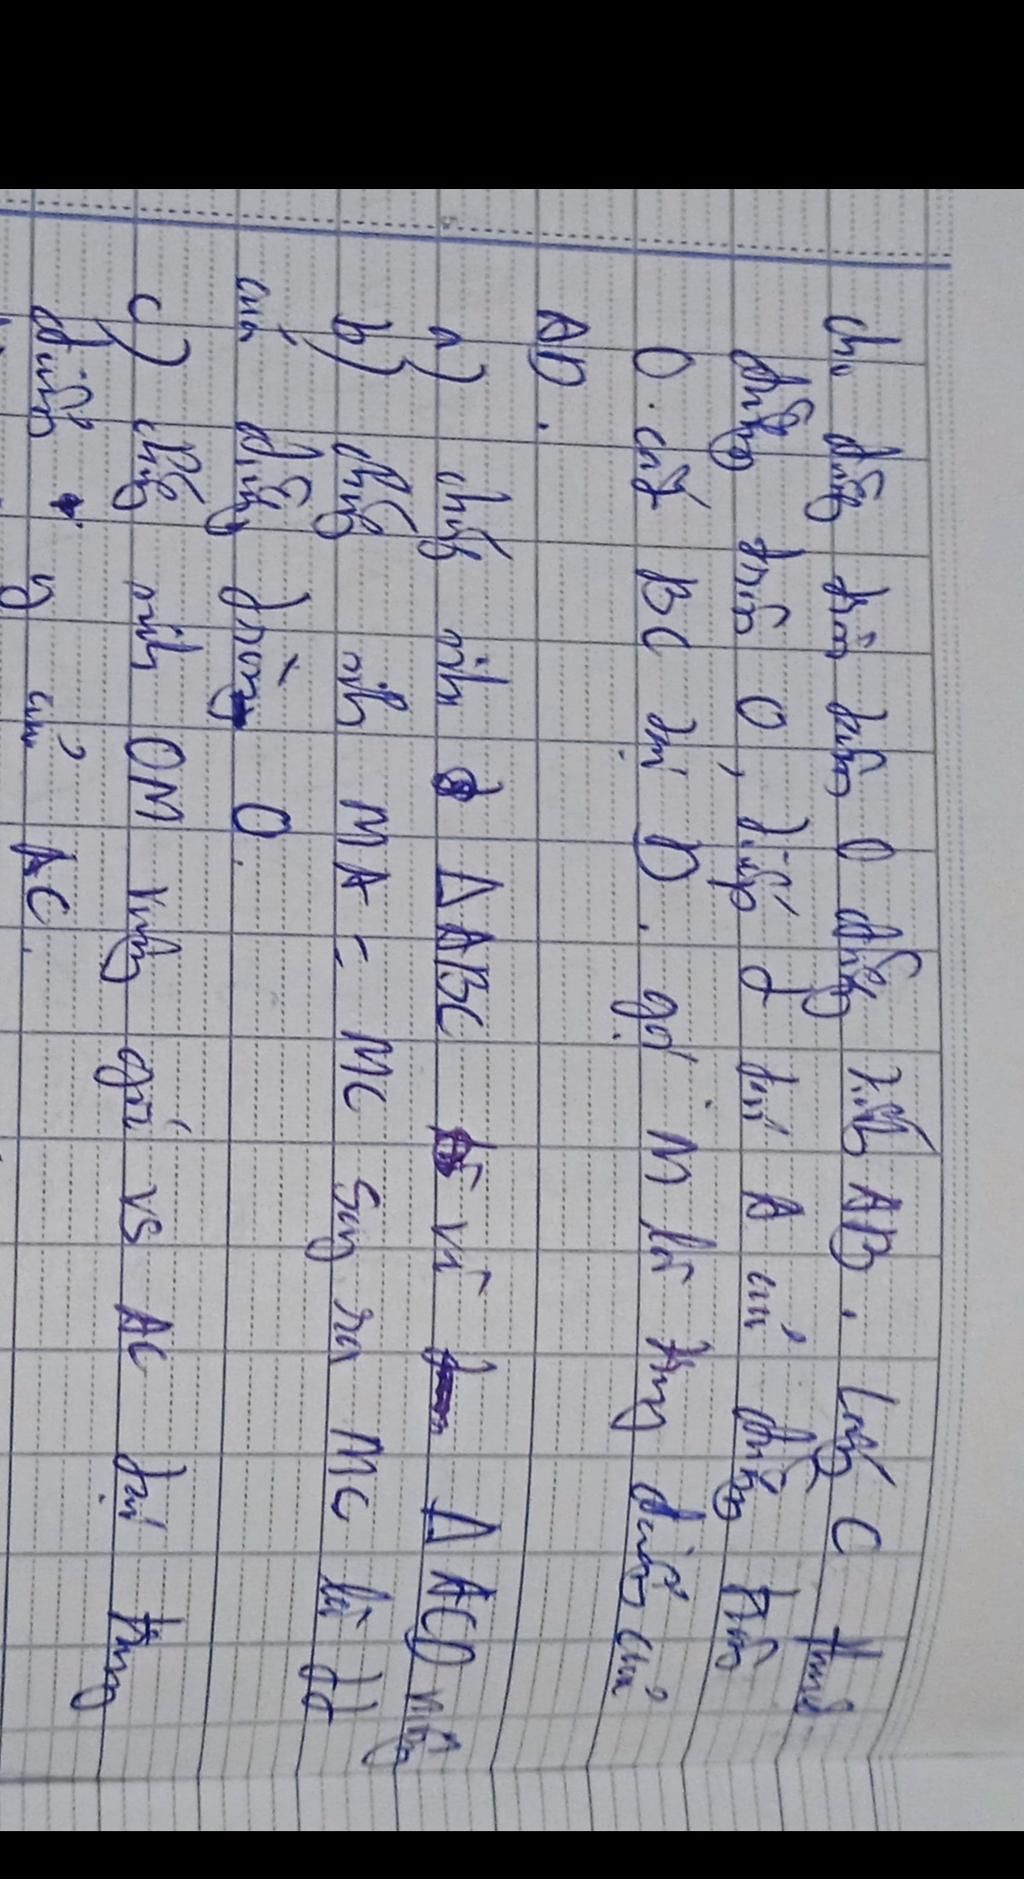 cho đường tròn tâm O đường kính AB. Lấy C thuộc
đường tròn O, tiếp t tại A của đường tròn
O. cắt BC tại D. gọi M là trung điểm của
AD.
a) chứng minh Δ ABC và Δ ACD vuông
b) chứng mih MA = MC Suy ra MC là tt
của đường tròng O.
c) chứng minh OM vuông góc vs AC tại trung
điểm của AC.